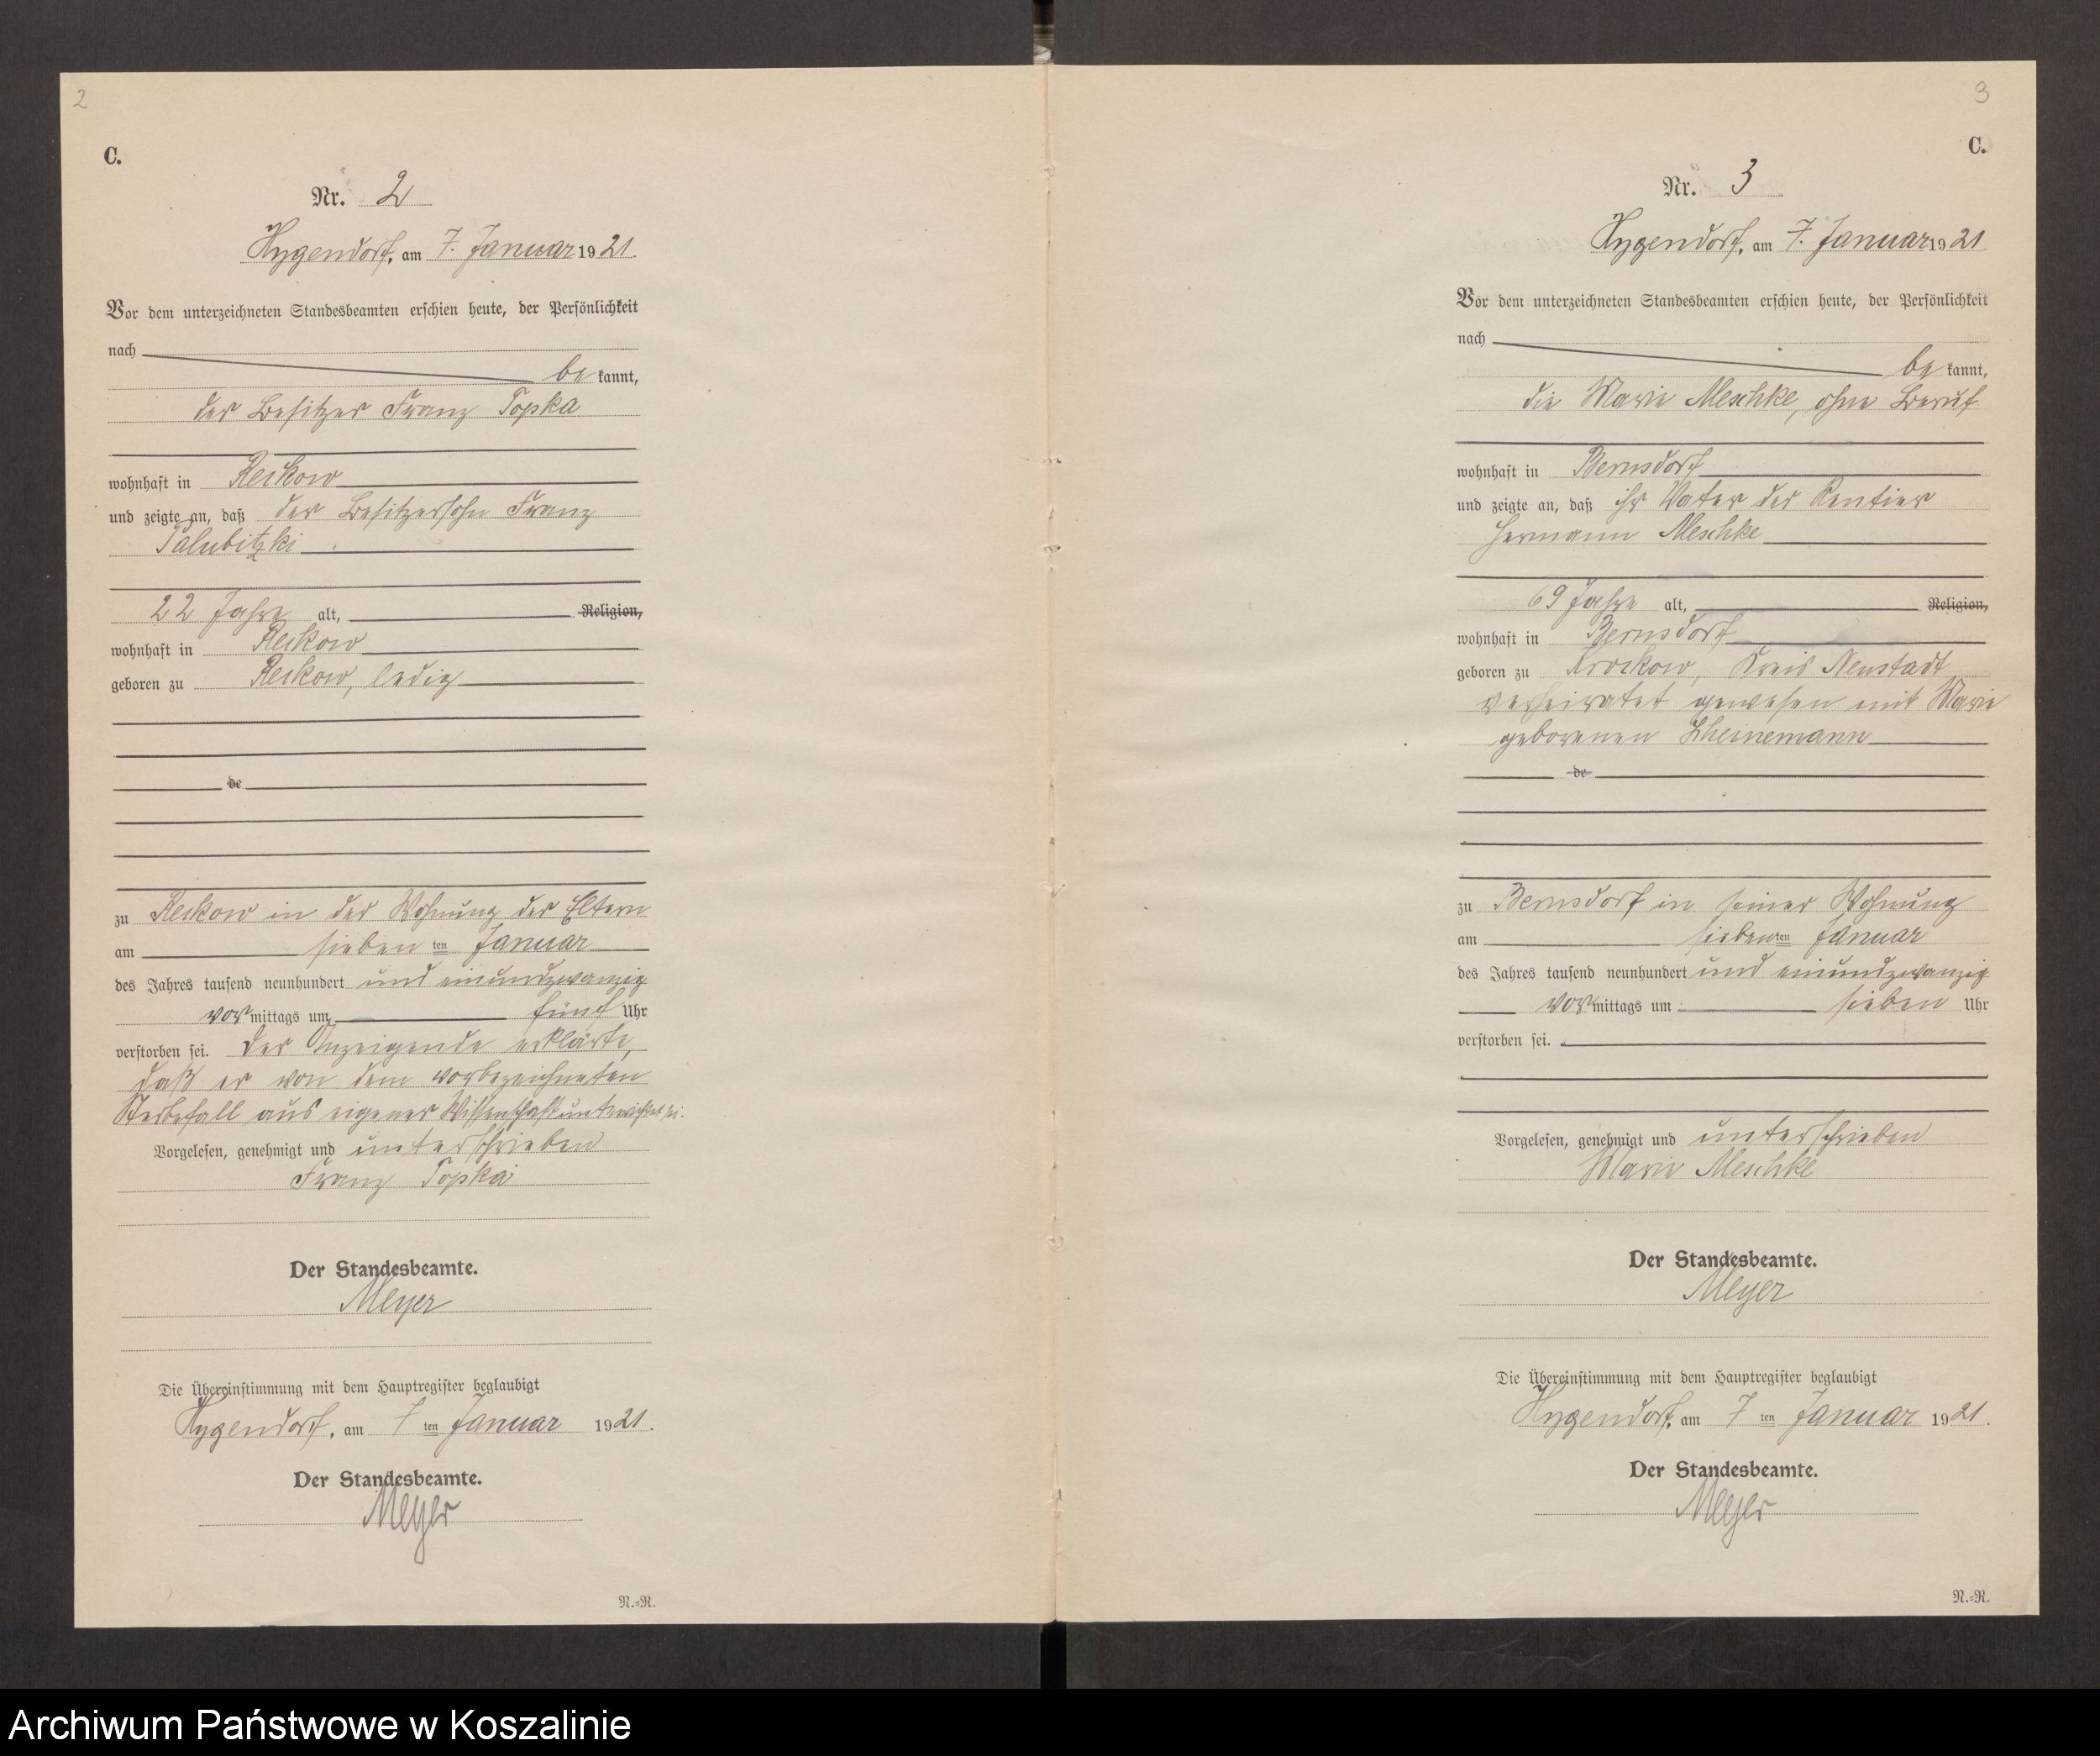 2
C.
Nr. 2
Hygendorf, am 7. Januar 1921.
Vor dem unterzeichneten Standesbeamten erschien heute, der Persönlichkeit
nach
be kannt,
der Besitzer Franz Topka
wohnhaft in Reckow
und zeigte an, daß der Besitzersohn Franz
Palubitzki
22 Jahre alt, Religion,
wohnhaft in Reckow
geboren zu Reckow, ledig
de
zu Reckow in der Wohnung der Eltern
am sieben ten Januar
des Jahres tausend neunhundert und einundzwanzig
vormittags um fünf Uhr
verstorben sei. Der Anzeigende erklärte,
daß er von dem vorbezeichneten
Sterbefall aus eigener Wissenschaft unterrichtet sei.
Vorgelesen, genehmigt und unterschrieben
Franz Topka
Der Standesbeamte.
Meyer
Die Übereinstimmung mit dem Hauptregister beglaubigt
Hygendorf, am 7 ten Januar 1921.
Der Standesbeamte.
Meyer
N.=R.
3
C.
Nr. 3
Hygendorf, am 7. Januar 1921
Vor dem unterzeichneten Standesbeamten erschien heute, der Persönlichkeit
nach
be kannt,
die Marie Meschke, ohne Beruf
wohnhaft in Bernsdorf
und zeigte an, daß ihr Vater der Rentier
Hermann Meschke
69 Jahre alt, Religion,
wohnhaft in Bernsdorf
geboren zu Krockow, Kreis Neustadt
verheiratet gewesen mit Marie
geborenen
de
zu Bernsdorf in seiner Wohnung
am siebenten Januar
des Jahres tausend neunhundert und einundzwanzig
vormittags um sieben Uhr
verstorben sei.
Vorgelesen, genehmigt und unterschrieben
Marie Meschke
Der Standesbeamte.
Meyer
Die Übereinstimmung mit dem Hauptregister beglaubigt
Hygendorf, am 7 ten Januar 1921.
Der Standesbeamte.
Meyer
N.=R.
Archiwum Państwowe w Koszalinie